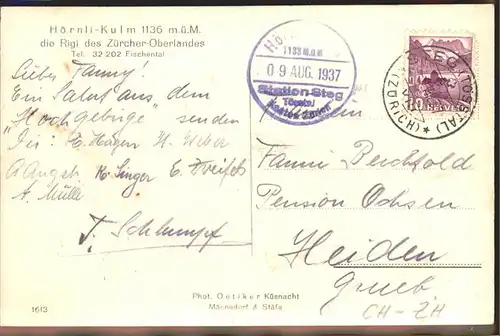 Hörnli-Kulm 1136 m.ü.M.
die Rigi des Zürcher-Oberlandes
Tel. 32 202 Fischental
Liebe Fanny!
Ein Salut aus dem
"Hochgebirge" senden
Dir: E. Hagen H. Weber
A Angst K. Singer E.
A. Mülli
F. Schlumpf
1133 M.ü.M
09 AUG. 1937
Station Steg
Tösstal
Kanton Zürich
STEG (TÖSSTAL)
(ZÜRICH)
10 HELVETIA
Fräulein
Fanni Berchtold
Pension Ochsen
Heiden
Grueb
CH-ZH
Phot. Oetiker Küsnacht
Männedorf & Stäfa
1613